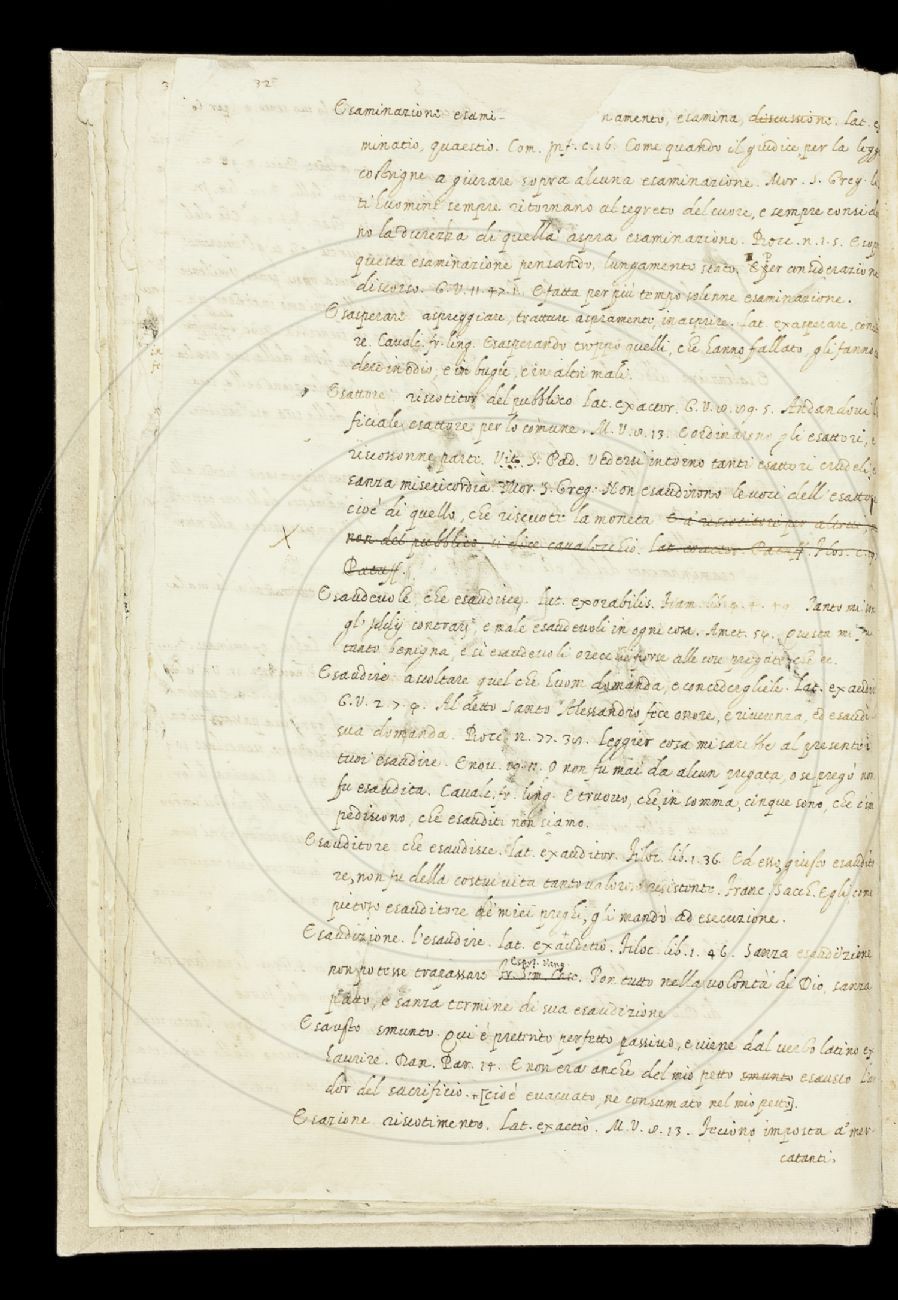 32
Esaminazione esami- namento, esamina, discussione. Lat. ex
minatio, quaestio. Com. Inf. c. 16. Come quando il giudice per la legge
costrigne a giurare sopra alcuna esaminazione. Mor. S. Greg.
ti huomini sempre ritornano al segreto del cuore, e sempre conside
no la durezza di quella aspra esaminazione. Bocc. n. 1. 5. E sop
questa esaminazione pensando, lungamento stato. Per considerazione
discorso. G. V. 11. E fatta per più tempo solenne esaminazione.
Esasperare aspreggiare, trattare aspramente, inasprire. Lat. exasperare,
re. Cavalc. fr. ling. Esasperando troppo quelli, che hanno fallato, gli fanno
dere in odio, e in bugie, e in altri mali.
Esattore riscotitor del pubblico Lat. exactor. G. V. 5. Andandovi
ficiale esattore per lo comune. M. V. 13. E ordinarono gli esattori,
riscossonne parte. Vit. S. Pad. Vedersi intorno tanti esattori crudeli,
sanza misericordia. Mor. S. Greg. Non esaudirono le voci dell' esattore
cioè di quello, che riscuote la moneta
non del pubblico, si dice cavalocchio. Lat. exactor. Pataff.
Pataff.
Esaudevole, che esaudisce. Lat. exorabilis. Fiam. lib. 4. Tanto mi
gl' Iddij contrarj, e male esaudevoli in ogni cosa. Amet. 54. Questa mi
tuato benigna, e sì esaudevoli orecchie porse alle mie pregate, che ec.
Esaudire ascoltare quel che huom domanda, e concedergliele. Lat. exaudire
G. V. 2. 7. Al detto Santo Alessandro fece onore, e riverenza, ed esaudì
sua domanda. Bocc. n. 77. Leggier cosa mi sarebbe al presente i
tuoi esaudire. E nov. O non fu mai da alcun pregata, o se pregò non
fu esaudita. Cavalc. fr. ling. E truovo, che, in somma, cinque sono, che c' im
pediscono, che esauditi non siamo.
Esauditore che esaudisce. Lat. exauditor. Filoc. lib. 1. 36. Ed esso, giusto esaudito
re, non fu della costui vita tanto valoroso resistente. Franc. Sacch. Egli come
pietoso esauditore de' miei prieghi, gli mandò ad esecuzione.
Esaudizione. l'esaudire. Lat. exauditio. Filoc. lib. 1. 46. Sanza esaudizione
non potesse trapassare Espos. Vang. fr. Sim. Casc. Per tutto nella volontà di Dio, sanza
patto, e sanza termine di sua esaudizione
Esausto smunto. Qui è preterito perfetto passivo, e viene dal verbo latino ex
haurire. Dan. Par. 14. E non era anche del mio petto smunto esausto L'ar
dor del sacrificio. + [cioè evacuato, ne consumato nel mio petto].
Esazione riscotimento. Lat. exactio. M. V. 13. Feciono imposta a' mer-
catanti,